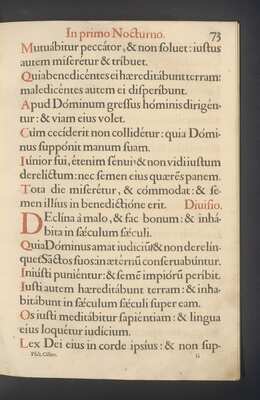 In primo Nocturno. 73
Mutuábitur peccátor, & non soluet: iustus
autem miserétur & tribuet.
Quia benedicéntes ei hæreditábunt terram:
maledicéntes autem ei disperíbunt.
Apud Dóminum gressus hóminis dirigén-
tur: & viam eius volet.
Cum cecíderit non collidétur: quia Dómi-
nus suppónit manum suam.
Iúnior fui, étenim sénui & non vidi iustum
derelíctum: nec semen eius quærēs panem.
Tota die miserétur, & cómmodat: & se-
men illíus in benedictióne erit. Diuisio.
DEclína à malo, & fac bonum: & inhá-
bita in sæculum sæculi.
Quia Dóminus amat iudíciū & non derelin-
quet Sāctos suos in ætérnū conseruabúntur.
Iniústi puniéntur: & semē impiórū períbit.
Iusti autem hæreditábunt terram: & inha-
bitábunt in sæculum sæculi super eam.
Os iusti meditábitur sapiéntiam: & lingua
eius loquétur iudícium.
Lex Dei eius in corde ipsíus: & non sup-